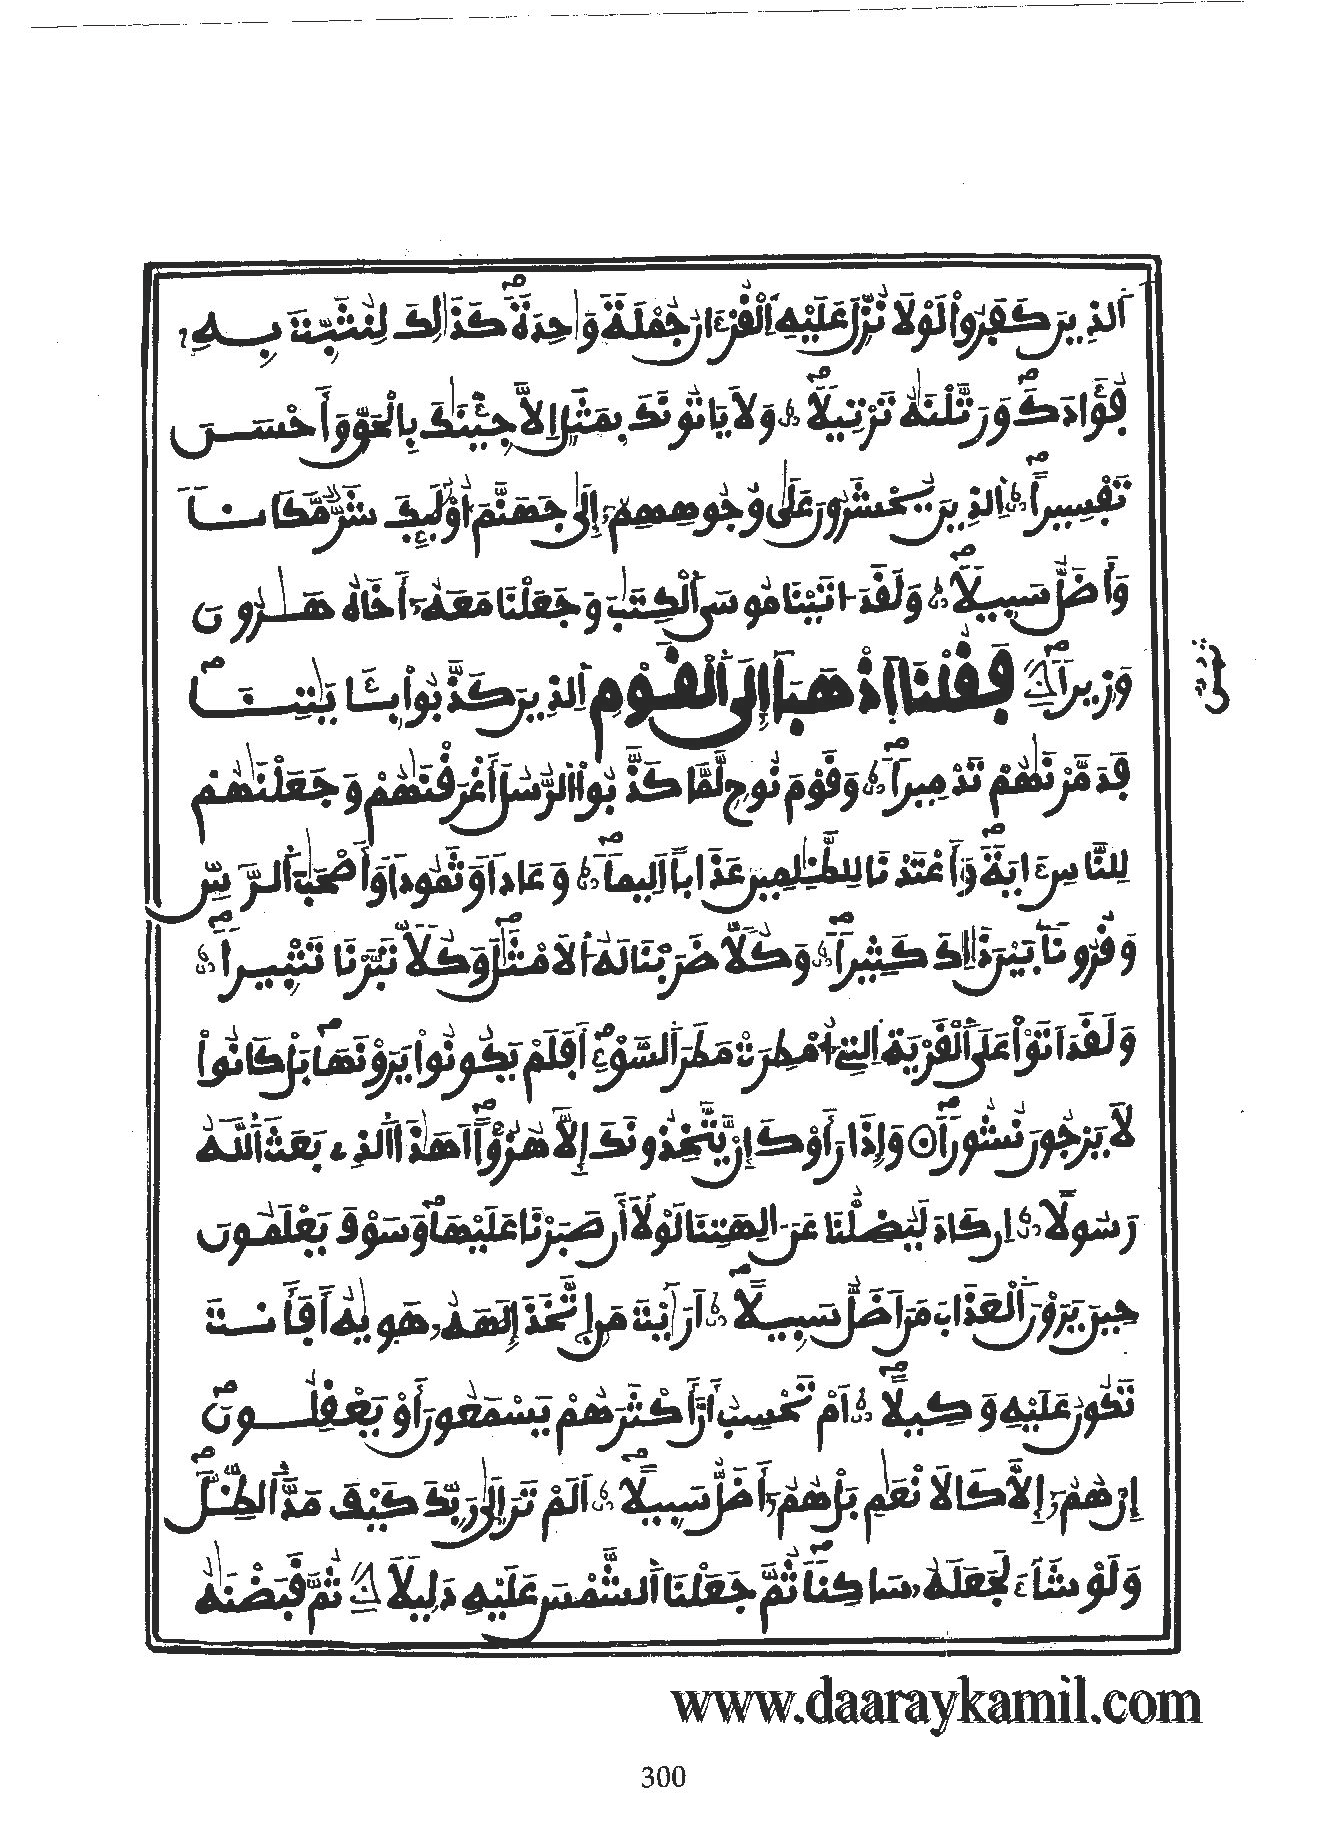 اَلذِينَ كَفَرُواْ لَوْلَا نُزِّلَ عَلَيْهِ اِلْقُرْءَانُ جُمْلَةً وَٰحِدَةً كَذَٰلِكَ لِنُثَبِّتَ بِهِ
فُؤَادَكَ وَرَتَّلْنَٰهُ تَرْتِيلًا وَلَا يَاتُونَكَ بِمَثَلٍ اِلَّا جِئْنَٰكَ بِالْحَقِّ وَأَحْسَنَ
تَفْسِيراً اِلذِينَ يُحْشَرُونَ عَلَىٰ وُجُوهِهِمُ إِلَىٰ جَهَنَّمَ أُوْلَٰئِكَ شَرٌّ مَّكَاناً
وَأَضَلُّ سَبِيلًا وَلَقَدَ اتَيْنَا مُوسَى اَلْكِتَٰبَ وَجَعَلْنَا مَعَهُ أَخَاهُ هَٰرُونَ
وَزِيراً فَقُلْنَا اَذْهَبَا إِلَى اَلْقَوْمِ اِلذِينَ كَذَّبُواْ بِـَٔايَٰتِنَا
فَدَمَّرْنَٰهُمْ تَدْمِيراً وَقَوْمَ نُوحٍ لَّمَّا كَذَّبُواْ الرُّسُلَ أَغْرَقْنَٰهُمْ وَجَعَلْنَٰهُمْ
لِلنَّاسِ ءَايَةً وَأَعْتَدْنَا لِلظَّٰلِمِينَ عَذَاباً اَلِيماً وَعَاداً وَثَمُوداً وَأَصْحَٰبَ اَلرَّسِّ
وَقُرُوناً بَيْنَ ذَٰلِكَ كَثِيراً وَكُلّاً ضَرَبْنَا لَهُ اَلَامْثَٰلَ وَكُلّاً تَبَّرْنَا تَتْبِيراً
وَلَقَدَ اتَوْاْ عَلَى اَلْقَرْيَةِ اِلتِي أُمْطِرَتْ مَطَرَ اَلسَّوْءِ أَفَلَمْ يَكُونُواْ يَرَوْنَهَا بَلْ كَانُواْ
لَا يَرْجُونَ نُشُوراً وَإِذَا رَأَوْكَ إِنْ يَّتَّخِذُونَكَ إِلَّا هُزُؤاً اَهَٰذَا اَلذِي بَعَثَ اَللَّهُ
رَسُولًا اِن كَادَ لَيُضِلُّنَا عَنَ الِهَتِنَا لَوْلَا أَن صَبَرْنَا عَلَيْهَا وَسَوْفَ يَعْلَمُونَ
حِينَ يَرَوْنَ اَلْعَذَابَ مَنَ اَضَلُّ سَبِيلًا اَرَٰيْتَ مَنِ اِتَّخَذَ إِلَٰهَهُ هَوَيٰهُ أَفَأَنتَ
تَكُونُ عَلَيْهِ وَكِيلًا اَمْ تَحْسِبُ أَنَّ أَكْثَرَهُمْ يَسْمَعُونَ أَوْ يَعْقِلُونَ
إِنْ هُمُ إِلَّا كَالَانْعَٰمِ بَلْ هُمُ أَضَلُّ سَبِيلًا اَلَمْ تَرَ إِلَىٰ رَبِّكَ كَيْفَ مَدَّ اَلظِّلَّ
وَلَوْ شَاءَ لَجَعَلَهُ سَاكِناً ثُمَّ جَعَلْنَا اَلشَّمْسَ عَلَيْهِ دَلِيلًا ثُمَّ قَبَضْنَٰهُ
www.daaraykamil.com
300